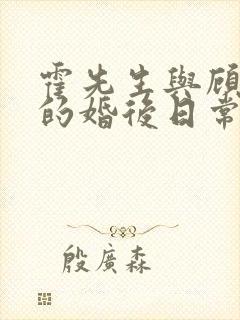 霍先生與顧
的婚後日常
殷廣森